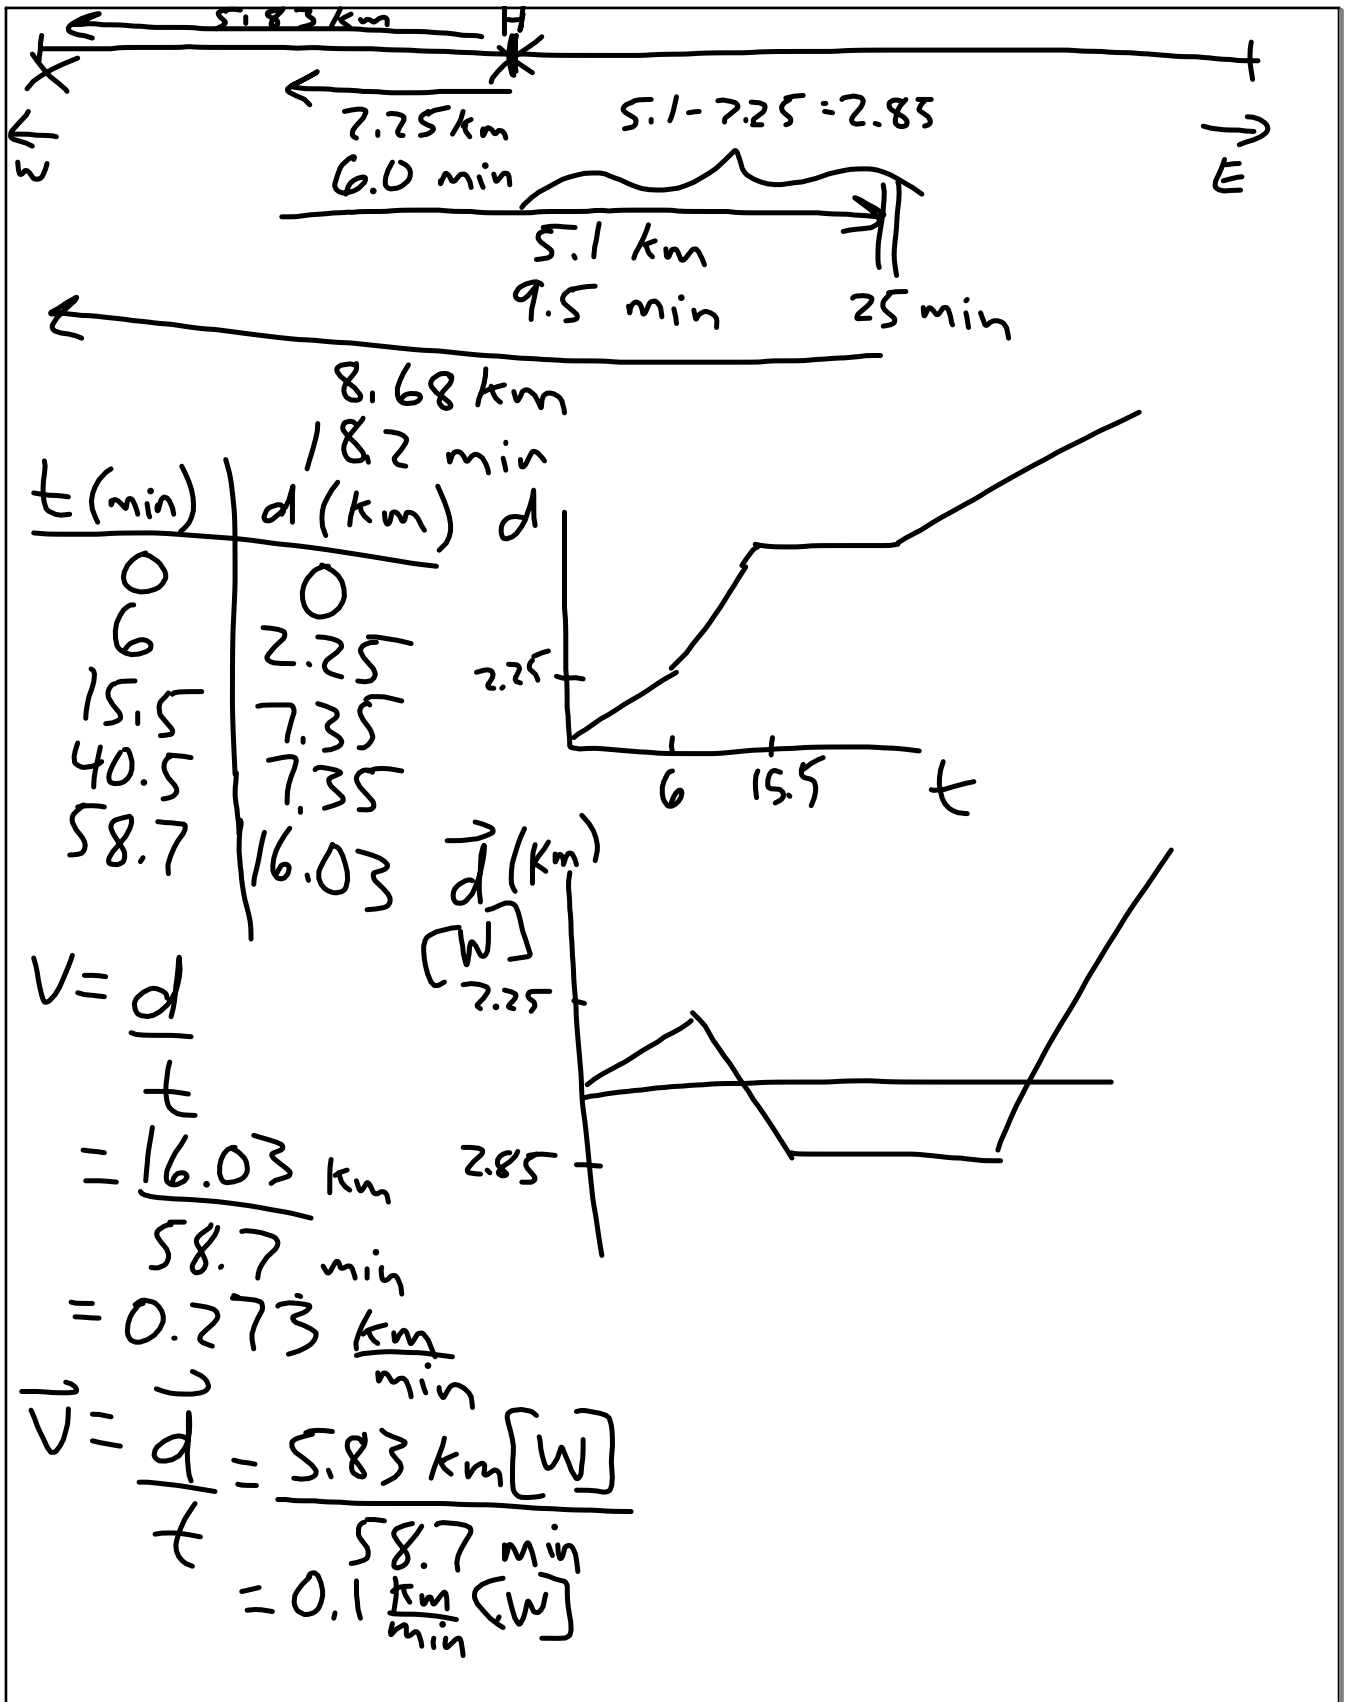 5.83 km
H
2.25 km
5.1 - 2.25 = 2.85
W
6.0 min
E
5.1 km
9.5 min
25 min
8.68 km
18.2 min
t (min) d (km)
0 0
6 2.25
15.5 7.35
40.5 7.35
58.7 16.03
d
2.25
6 15.5 t
d (km)
[W]
2.25
2.85
V = d
t
= 16.03 km
58.7 min
= 0.273 km
min
V = d = 5.83 km [W]
t 58.7 min
= 0.1 km [W]
min